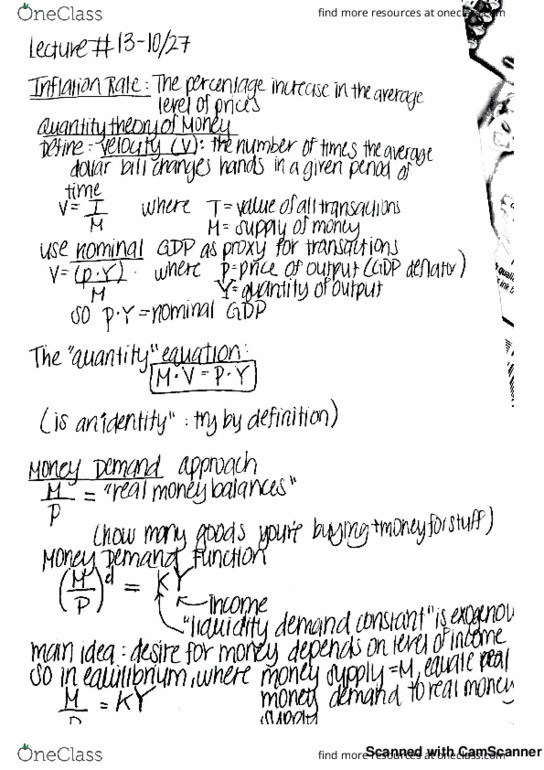 OneClass
find more resources at oneclass.com
Lecture #13-10/27
Inflation Rate: The percentage increase in the average
level of prices
Quantity theory of Money
Define: velocity (v): the number of times the average
dollar bill changes hands in a given period of
time
V = T/M where T = value of all transactions
M = supply of money
use nominal GDP as proxy for transactions
V = (P·Y)/M where p = price of output (GDP deflator)
Y = quantity of output
so P·Y = nominal GDP
The "quantity" equation:
M·V = P·Y
(is an identity" : try by definition)
Money Demand approach
M/P = "real money balances"
(how many goods you're buying + money for stuff)
Money Demand Function
(M/P)^d = KY
income
"liquidity demand constant" is exogenou
main idea: desire for money depends on level of income
so in equilibrium, where money supply = M, equate real
M/P = KY money demand to real money
supply
OneClass
find more resources at oneclass.com
Scanned with CamScanner